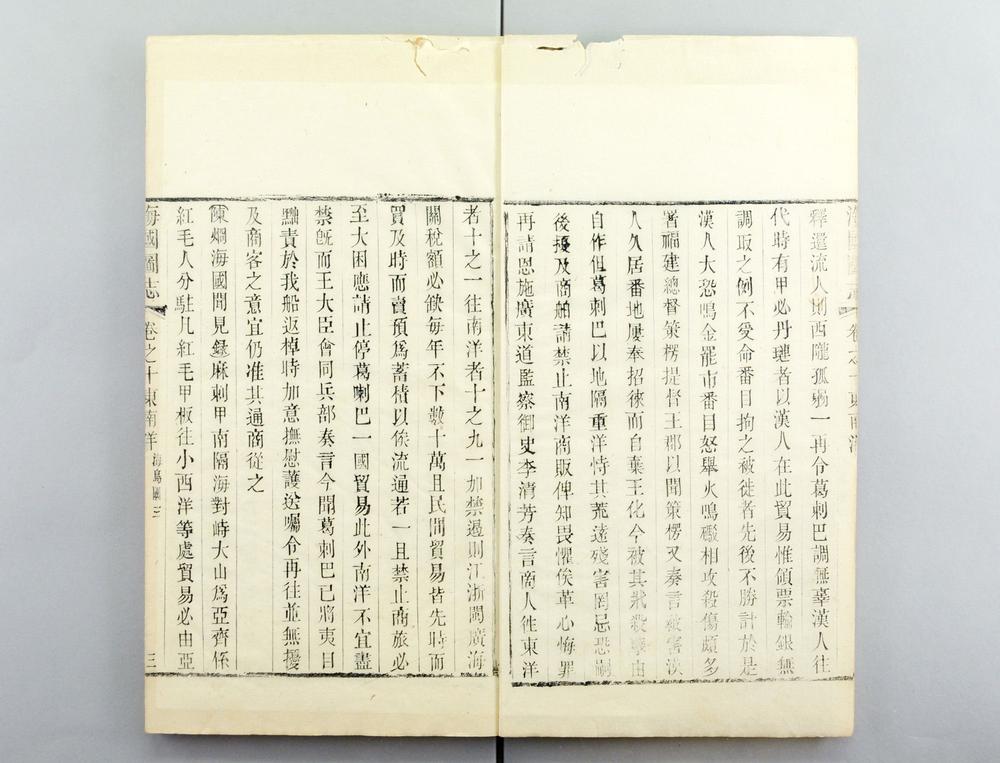 釋還流人則西隴孤弱一再令葛剌巴調無辜漢人往
代時有甲必丹璉者以漢人在此貿易惟領票輸銀無
調取之例不受命番目拘之被徙者先後不勝計於是
漢人大恐鳴金罷市番目怒舉火鳴礮相攻殺傷頗多
署福建總督策楞提督王郡以聞策楞又奏言被害漢
人久居番地屢奉招徠而自棄王化今被其戕殺孽由
自作但葛剌巴以地隔重洋恃其荒遠殘害罔忌恐嗣
後擾及商舶請禁止南洋商販俾知畏懼俟革心悔罪
再請恩施廣東道監察御史李清芳奏言商人往東洋
者十之一往南洋者十之九一加禁遏則江浙閩廣海
關稅額必缺每年不下數十萬且民間貿易皆先時而
買及時而賣預爲蓄積以俟流通若一旦禁止商旅必
至大困應請止停葛喇巴一國貿易此外南洋不宜盡
禁旣而王大臣會同兵部奏言今聞葛剌巴已將夷目
黜責於我船返棹時加意撫慰護送囑令再往並無擾
及商客之意宜仍准其通商從之
陳炯海國聞見錄麻剌甲南隔海對峙大山爲亞齊係
紅毛人分駐凡紅毛甲板往小西洋等處貿易必由亞
海國圖志 卷之十東南洋 海島國三 三